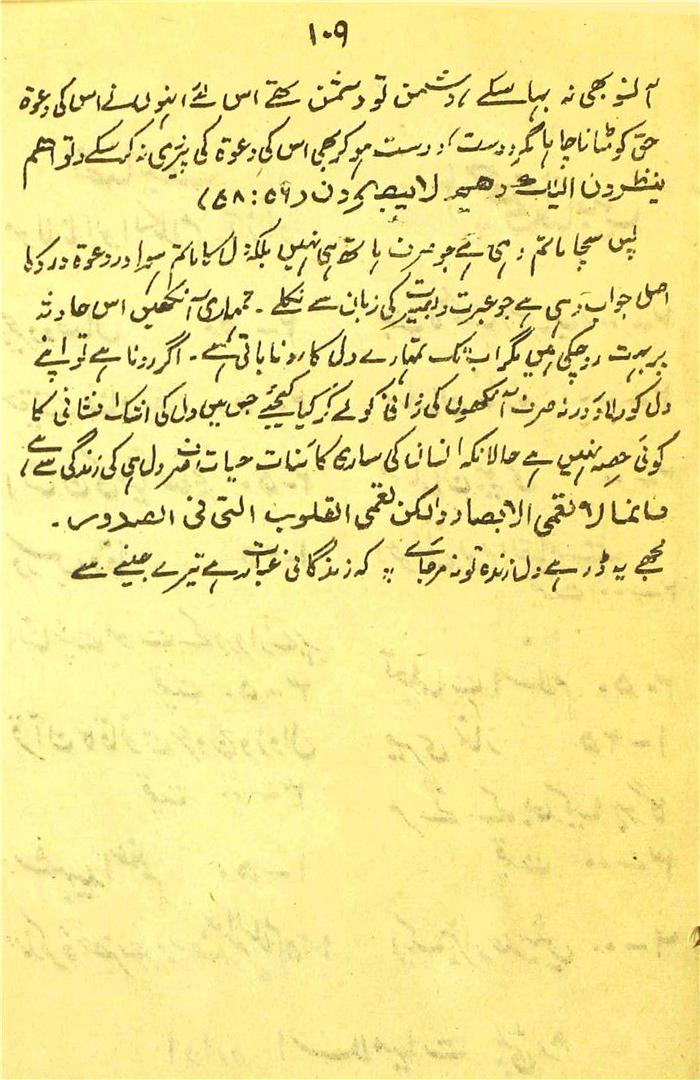 ۱۰۹
آنسو بھی نہ بہا سکے ، دشمن تو دشمن تھے اس لئے انہوں نے اس کی دعوۃ
حق کو مٹانا چاہا مگر دوست ، دوست ہو کر بھی اس کی دعوۃ کی پیروی نہ کر سکے وتراھم
ینظرون الیک وھم لا یبصرون (۵۸:۵۹)
پس سچا ماتم وہی ہے جو صرف ہاتھ ہی نہیں بلکہ دل کا ماتم ہو اور دعوۃ درد کا
اصل جواب وہی ہے جو عبرت وبصیرت کی زبان سے نکلے ۔ تمہاری آنکھیں اس حادثہ
پر بہت رو چکی ہیں مگر اب تک تمہارے دل کا رونا باقی ہے ۔ اگر رونا ہے تو اپنے
دل کو رلاؤ ورنہ صرف آنکھوں کی روانی کو لے کر کیا کیجئے جس میں دل کی اشک افشانی کا
کوئی حصہ نہیں ہے حالانکہ انسان کی ساری کائنات حیات صرف دل ہی کی زندگی سے ہے ،
فانھا لا تعمی الابصار ولکن تعمی القلوب التی فی الصدور ۔
مجھے یہ ڈر ہے دل زندہ تو نہ مر جائے ؞ کہ زندگانی عبارت ہے تیرے جینے سے